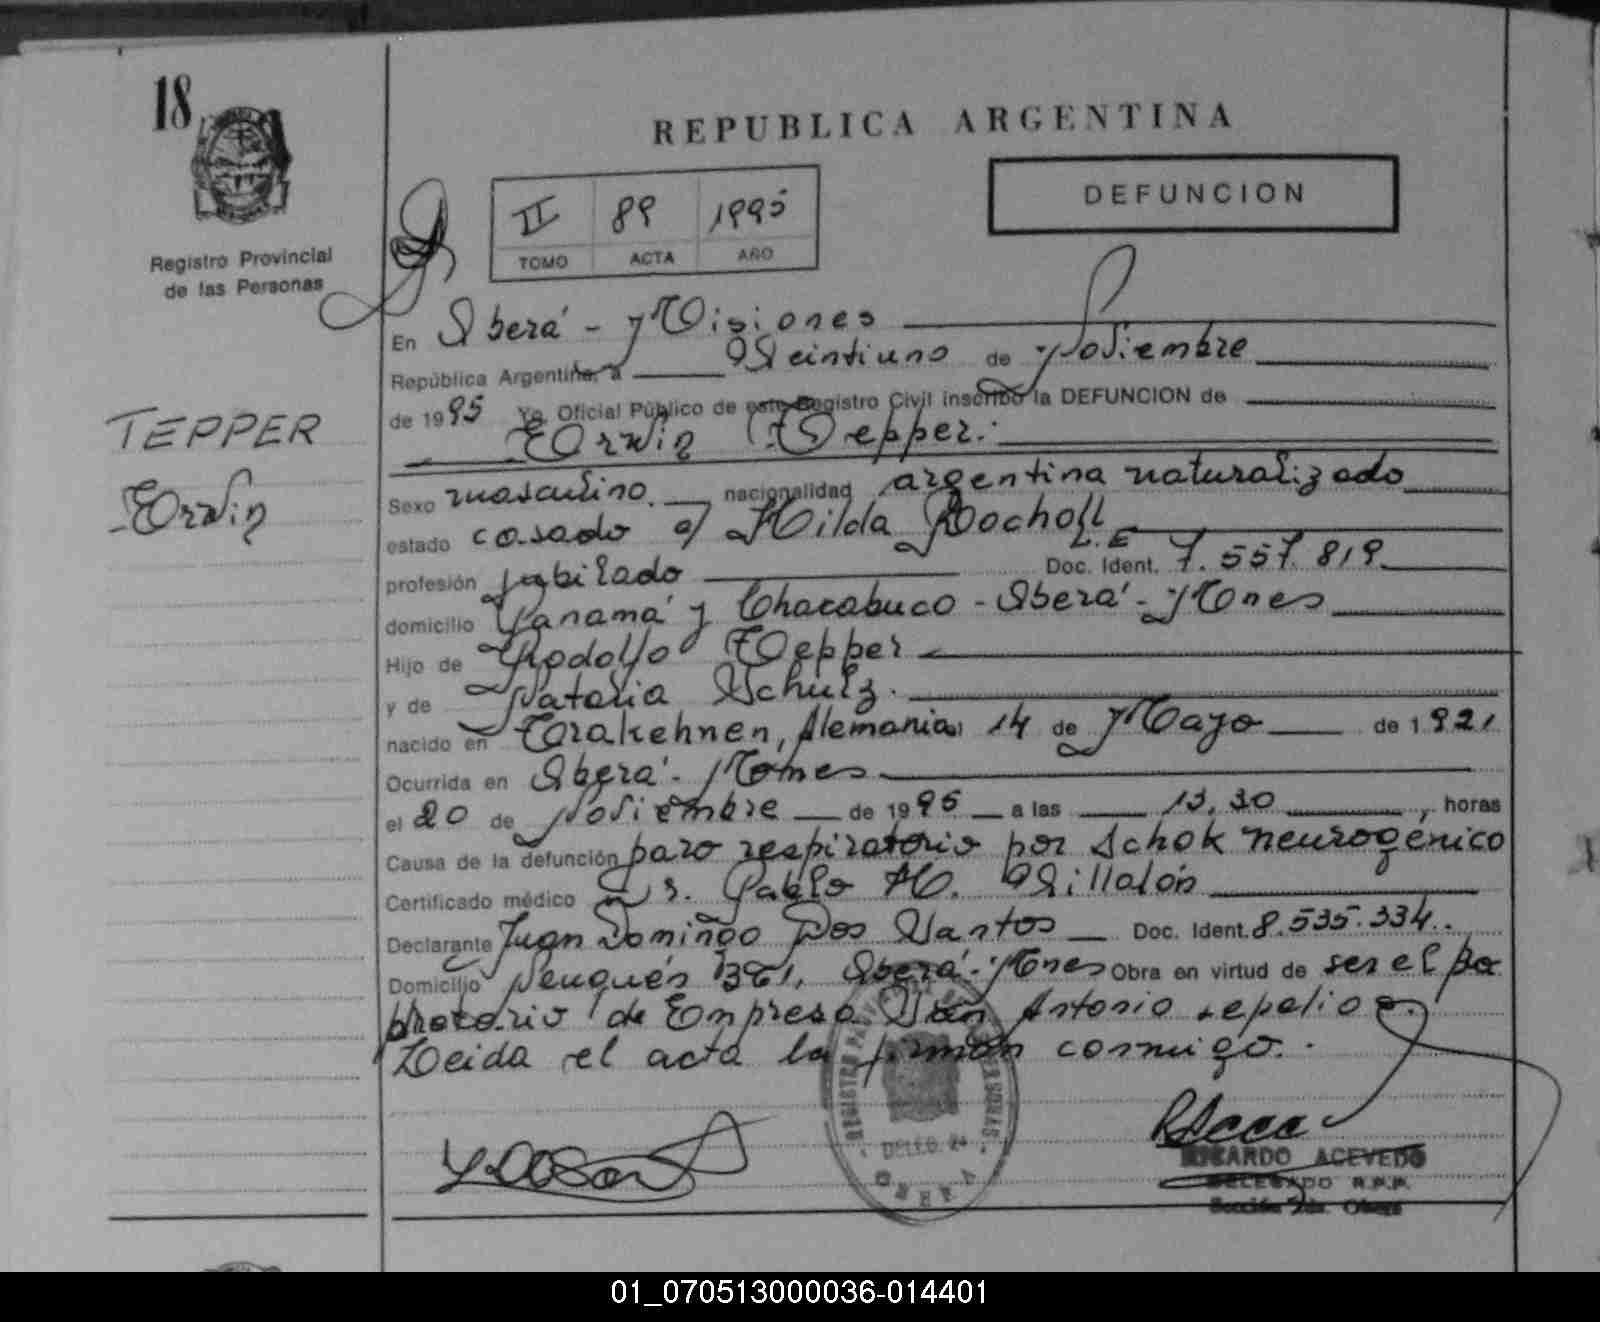 18
REPUBLICA ARGENTINA
DEFUNCION
II 89 1995
TOMO ACTA AÑO
Registro Provincial
de las Personas
En Oberá - Misiones
República Argentina, a Veintiuno de Noviembre
de 1995 Yo, Oficial Público de este Registro Civil inscribo la DEFUNCION de
Erwin Tepper.
TEPPER
Erwin
Sexo masculino. nacionalidad argentina naturalizado
estado casado c/ Hilda Rocholl
profesión jubilado Doc. Ident. L.E 7.557.819
domicilio Panamá y Chacabuco - Oberá - Mnes
Hijo de Rodolfo Tepper
y de Natalia Schulz.
nacido en Trakehnen, Alemania, 14 de Mayo de 1.921
Ocurrida en Oberá - Mones
el 20 de Noviembre de 1995 a las 13,30, horas
Causa de la defunción paro respiratorio por Schok neurogenico
Certificado médico Dr. Pablo H. Villalón
Declarante Juan Domingo Dos Santos Doc. Ident. 8.535.334.
Domicilio Neuquén 361, Oberá - Mnes Obra en virtud de ser el pro
pietario de Empresa San Antonio sepelios.
Leida el acta la firman conmigo.
REGISTRO PERSONAS
DELEG. 2a
OBERA
RICARDO ACEVEDO
DELEGADO R.P.P.
Sección 2da. Oberá
01_070513000036-014401